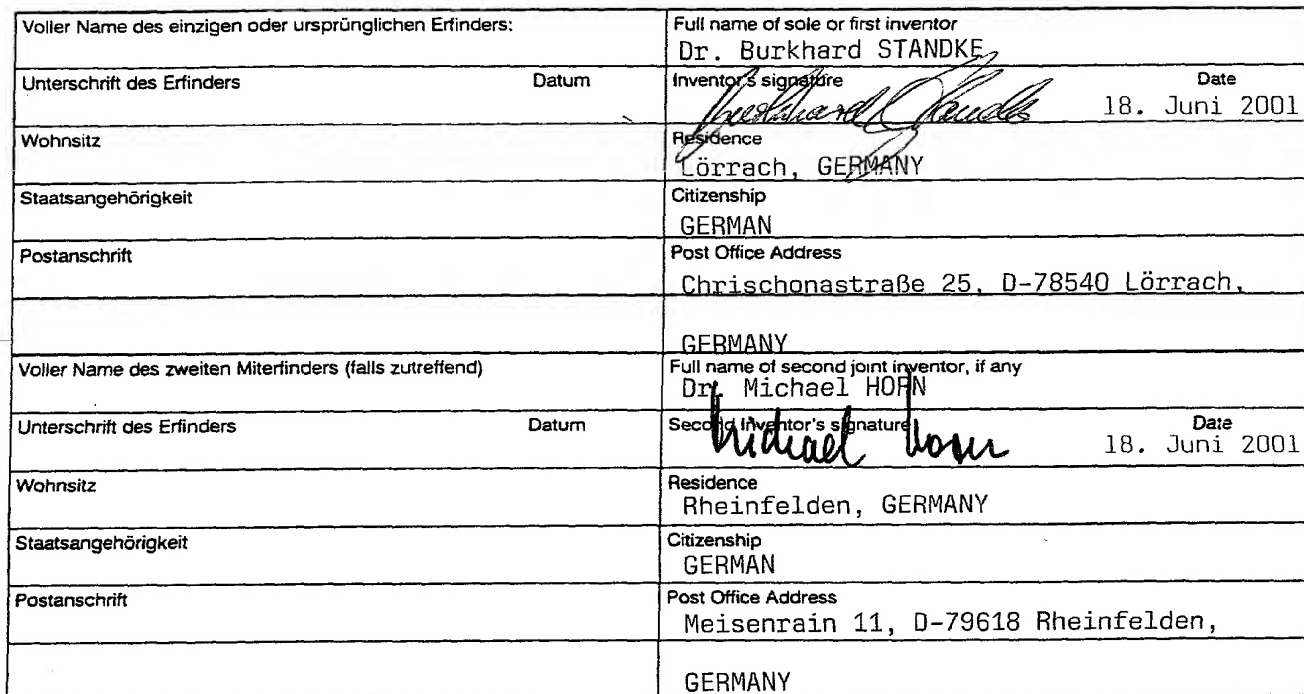 Voller Name des einzigen oder ursprünglichen Erfinders:
Full name of sole or first inventor
Dr. Burkhard STANDKE
Unterschrift des Erfinders Datum
Inventor's signature Date
Burkhard Standke
18. Juni 2001
Wohnsitz
Residence
Lörrach, GERMANY
Staatsangehörigkeit
Citizenship
GERMAN
Postanschrift
Post Office Address
Chrischonastraße 25, D-78540 Lörrach,
GERMANY
Voller Name des zweiten Miterfinders (falls zutreffend)
Full name of second joint inventor, if any
Dr. Michael HORN
Unterschrift des Erfinders Datum
Second Inventor's signature Date
Michael Horn
18. Juni 2001
Wohnsitz
Residence
Rheinfelden, GERMANY
Staatsangehörigkeit
Citizenship
GERMAN
Postanschrift
Post Office Address
Meisenrain 11, D-79618 Rheinfelden,
GERMANY